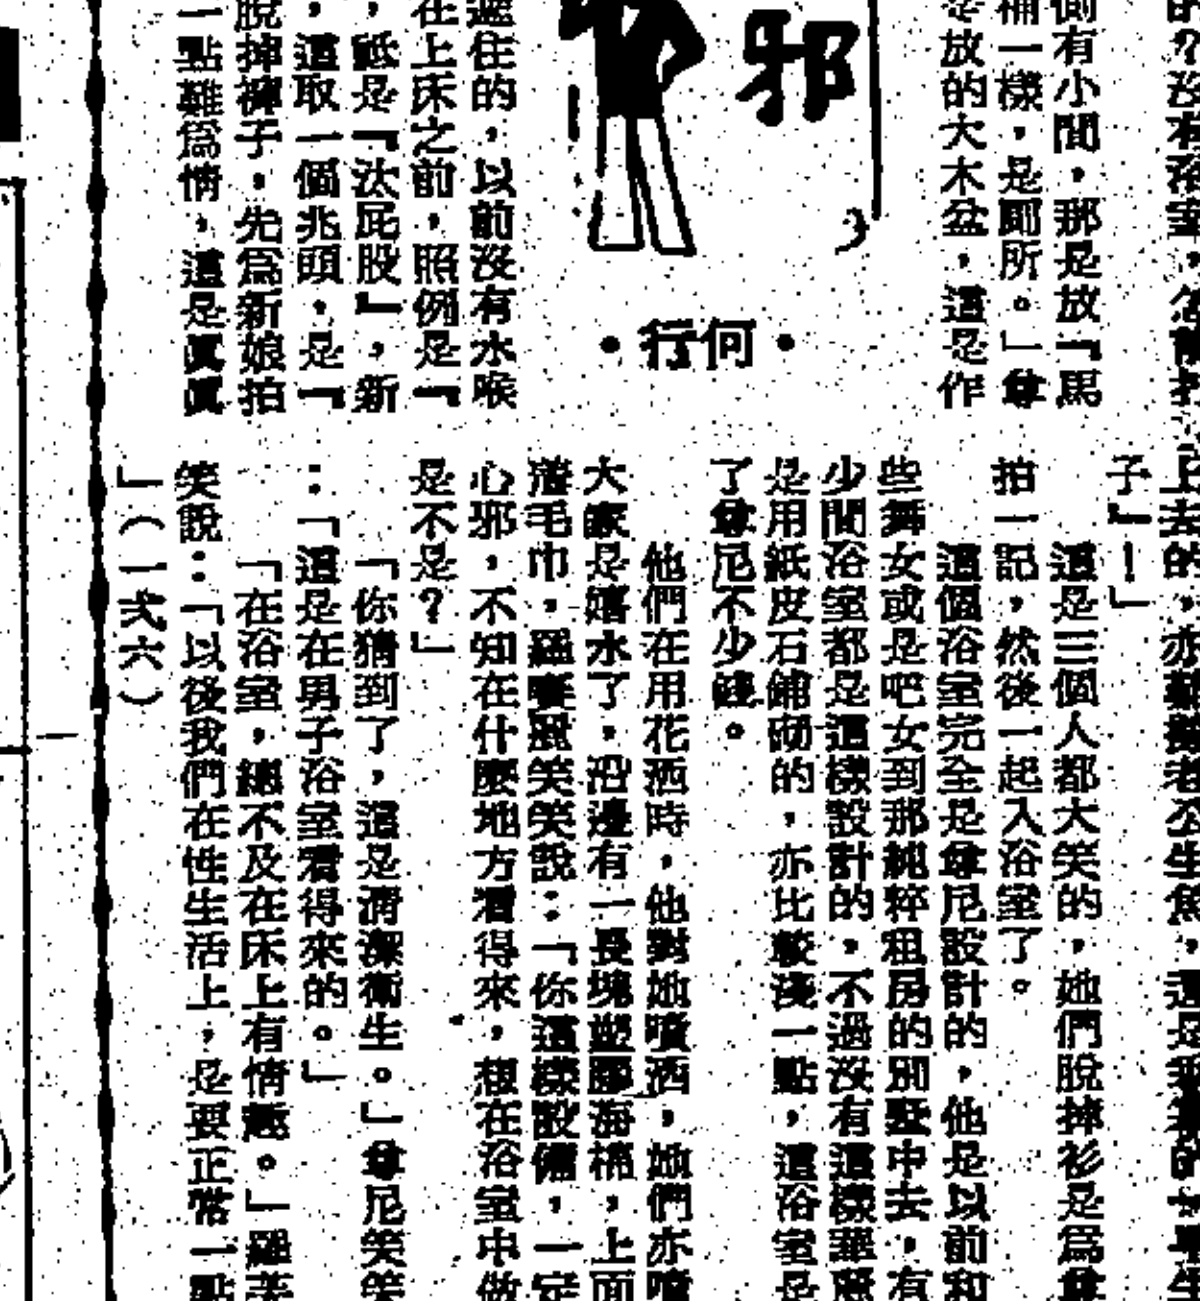 側有小間，那是放『馬
補一樣，是厠所。」尊
放的大木盆，這是作
邪
•何行•
住的，以前沒有水喉
在上床之前，照例是『
，祗是『汰屁股』，新
，這取一個兆頭，是『
脫掉褲子，先爲新娘拍
一點難爲情，這是眞眞
上去的，亦
老公生魚，這是我
子』！」
這是三個人都大笑的，她們脫掉衫是爲尊
拍一記，然後一起入浴室了。
這個浴室完全是尊尼設計的，他是以前和
些舞女或是吧女到那純粹租房的別墅中去，有
少間浴室都是這樣設計的，不過沒有這樣華麗
是用紙皮石舖砌的，亦比較淺一點，這浴室是
了尊尼不少錢。
他們在用花洒時，他對她噴洒，她們亦噴
大家是嬉水了，沿邊有一長塊塑膠海棉，上面
毛巾，羅賽麗笑笑說：「你這樣設備，一定
心邪，不知在什麼地方看得來，想在浴室中做
是不是？」
「你猜到了，這是清潔衛生。」尊尼笑笑
：「這是在男子浴室看得來的。」
「在浴室，總不及在床上有情趣。」羅
笑說：「以後我們在性生活上，是要正常一點
」（一弍六）